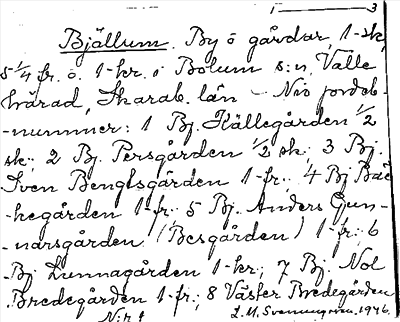 1 — 3
Bjällum. By ö gårdar, 1-sk,
5 1/4 fr. o. 1-kr. i Bolum s:n, Valle
härad, Skarab. län – Nio jordeb-
-nummer: 1 Bj. Källegården 1/2
sk; 2 Bj. Persgården 1/2 sk; 3 Bj.
Sven Bengtsgården 1-fr.; 4 Bj Bac
-kegården 1-fr; 5 Bj. Anders Gun-
-narsgården (Besgården) 1-fr.; 6
Bj. Lunnagården 1-kr; 7 Bj. Nol
Bredegården 1-fr.; 8 Väster Bredegården
N:r 1 L.M. Svenungsson. 1946.